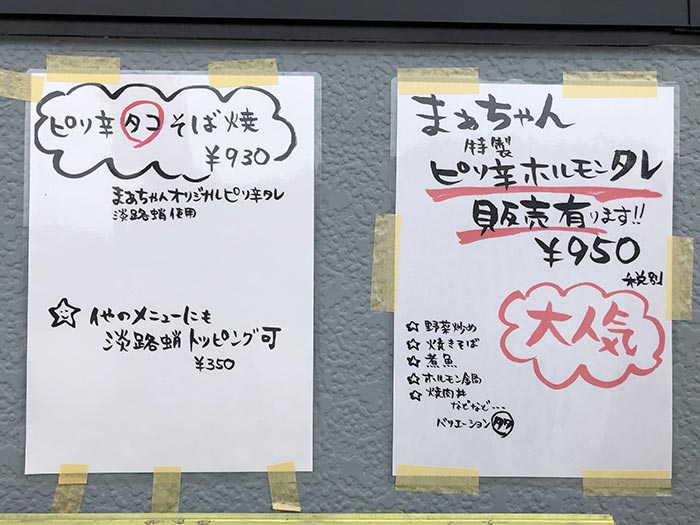 ピリ辛タコそば焼
¥930
まぁちゃんオリジナルピリ辛タレ
淡路蛸使用
☆他のメニューにも
淡路蛸トッピング可
¥350
まぁちゃん
特製
ピリ辛ホルモンタレ
販売有ります!!
¥950
税別
大人気
☆野菜炒め
☆焼きそば
☆煮魚
☆ホルモン鍋
☆焼肉丼
などなど...
バリエーション多